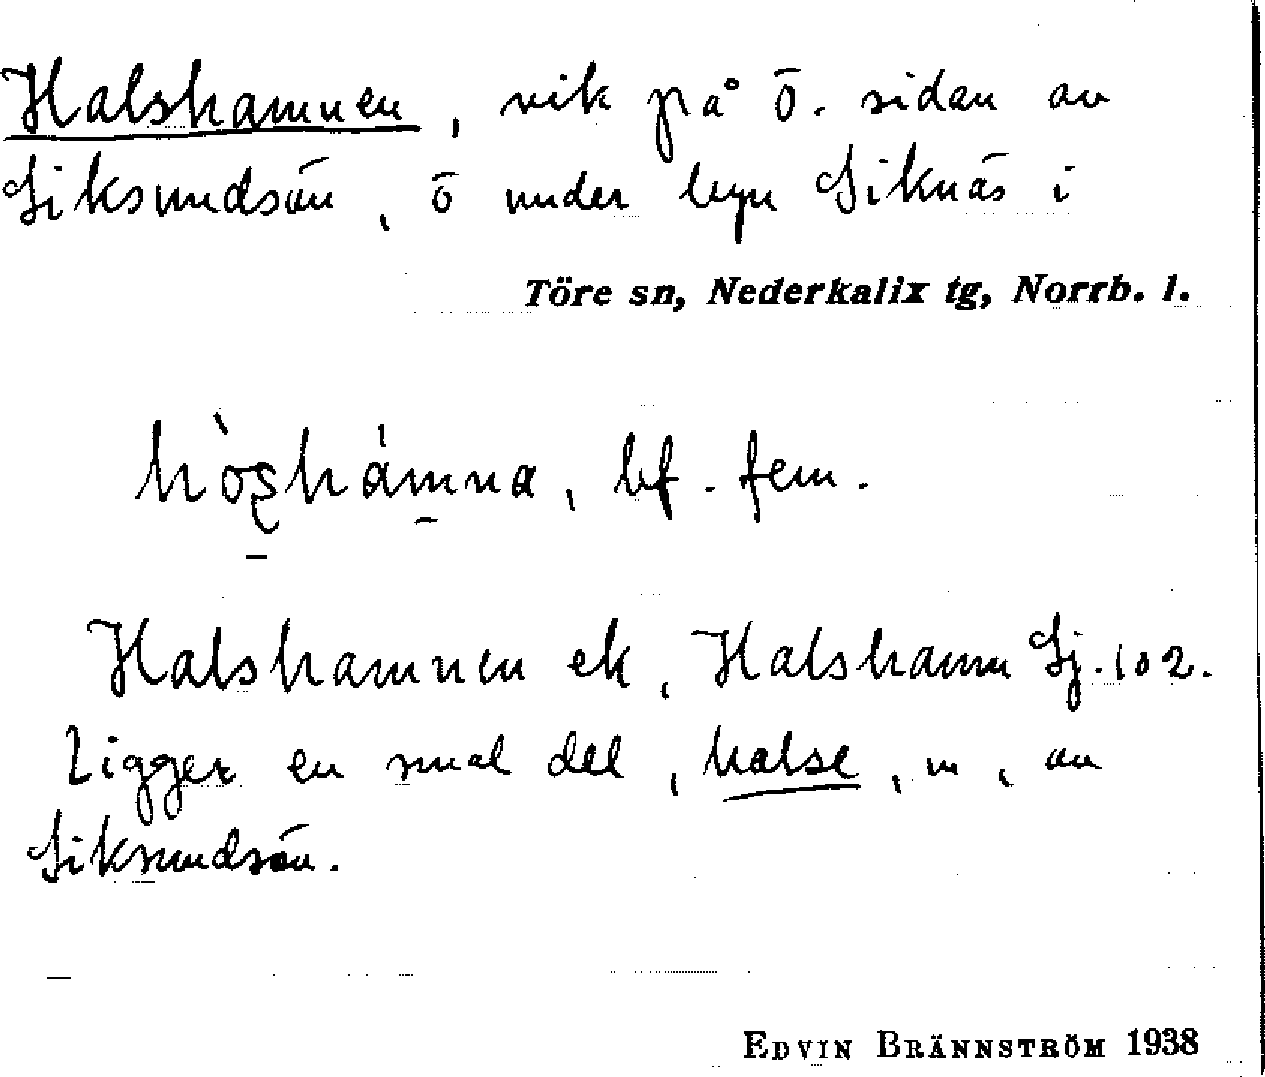 Halshamnen, vik på ö. sidan av
Siksundsön, ö under byn Siknäs i
Töre sn, Nederkalix tg, Norrb. l.
hòʂhámna, bf. fem.
Halshamnen ek, Halshamn Sj. 102.
Ligger en smal del, halse, m, av
Siksundsön.
EDVIN BRÄNNSTRÖM 1938